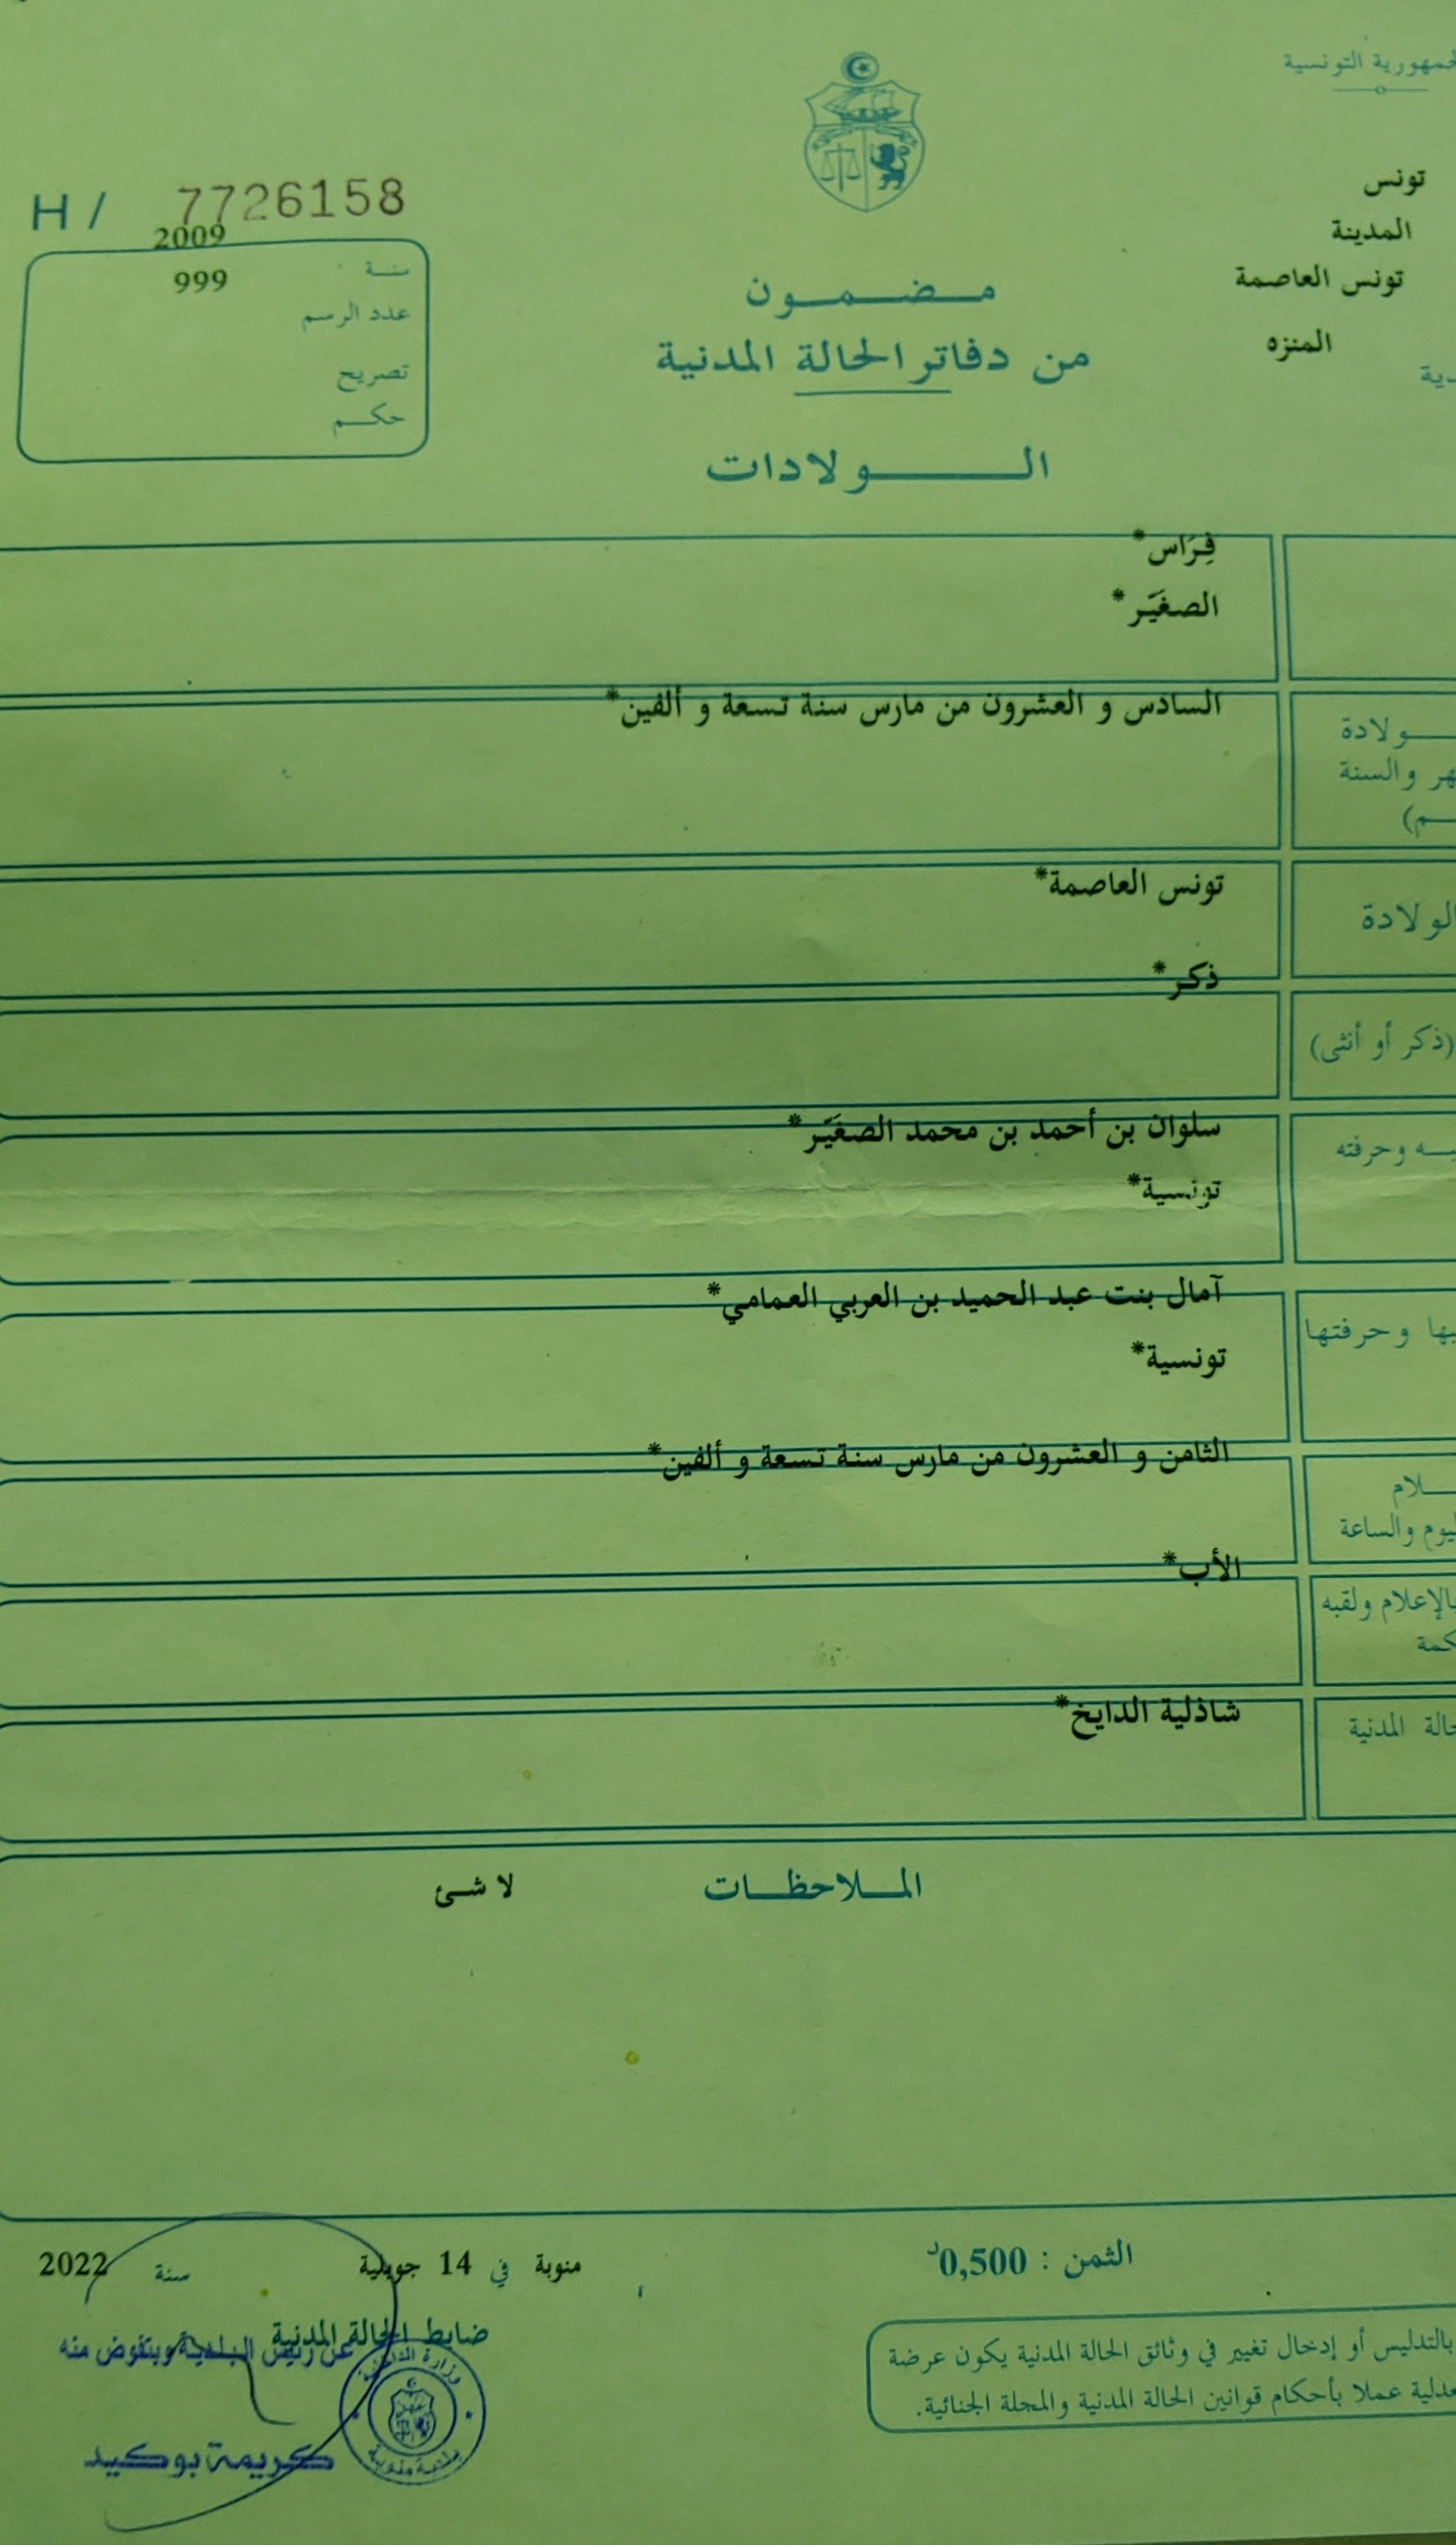 الجمهورية التونسية
تونس
المدينة
تونس العاصمة
المنزه
H / 7726158
2009
سنة
999
عدد الرسم
تصريح
حكم
مضمون
من دفاتر الحالة المدنية
الولادات
فِرَاس*
الصغَيّر*
السادس و العشرون من مارس سنة تسعة و ألفين*
ولادة
والسنة
تونس العاصمة*
الولادة
ذكر*
(ذكر أو أنثى)
سلوان بن أحمد بن محمد الصغَيّر*
وحرفته
تونسية*
آمال بنت عبد الحميد بن العربي العمامي*
وحرفتها
تونسية*
الثامن و العشرون من مارس سنة تسعة و ألفين*
اليوم والساعة
الأب*
بالإعلام ولقبه
شاذلية الدايخ*
الحالة المدنية
الملاحظات
لا شئ
الثمن : 0,500د
منوبة في 14 جويلية سنة 2022
ضابط الحالة المدنية
عن رئيس البلدية وبتفوض منه
وزارة الداخلية
بلدية منوبة
كريمة بوكيد
بالتدليس أو إدخال تغيير في وثائق الحالة المدنية يكون عرضة
عملا بأحكام قوانين الحالة المدنية والمجلة الجنائية.